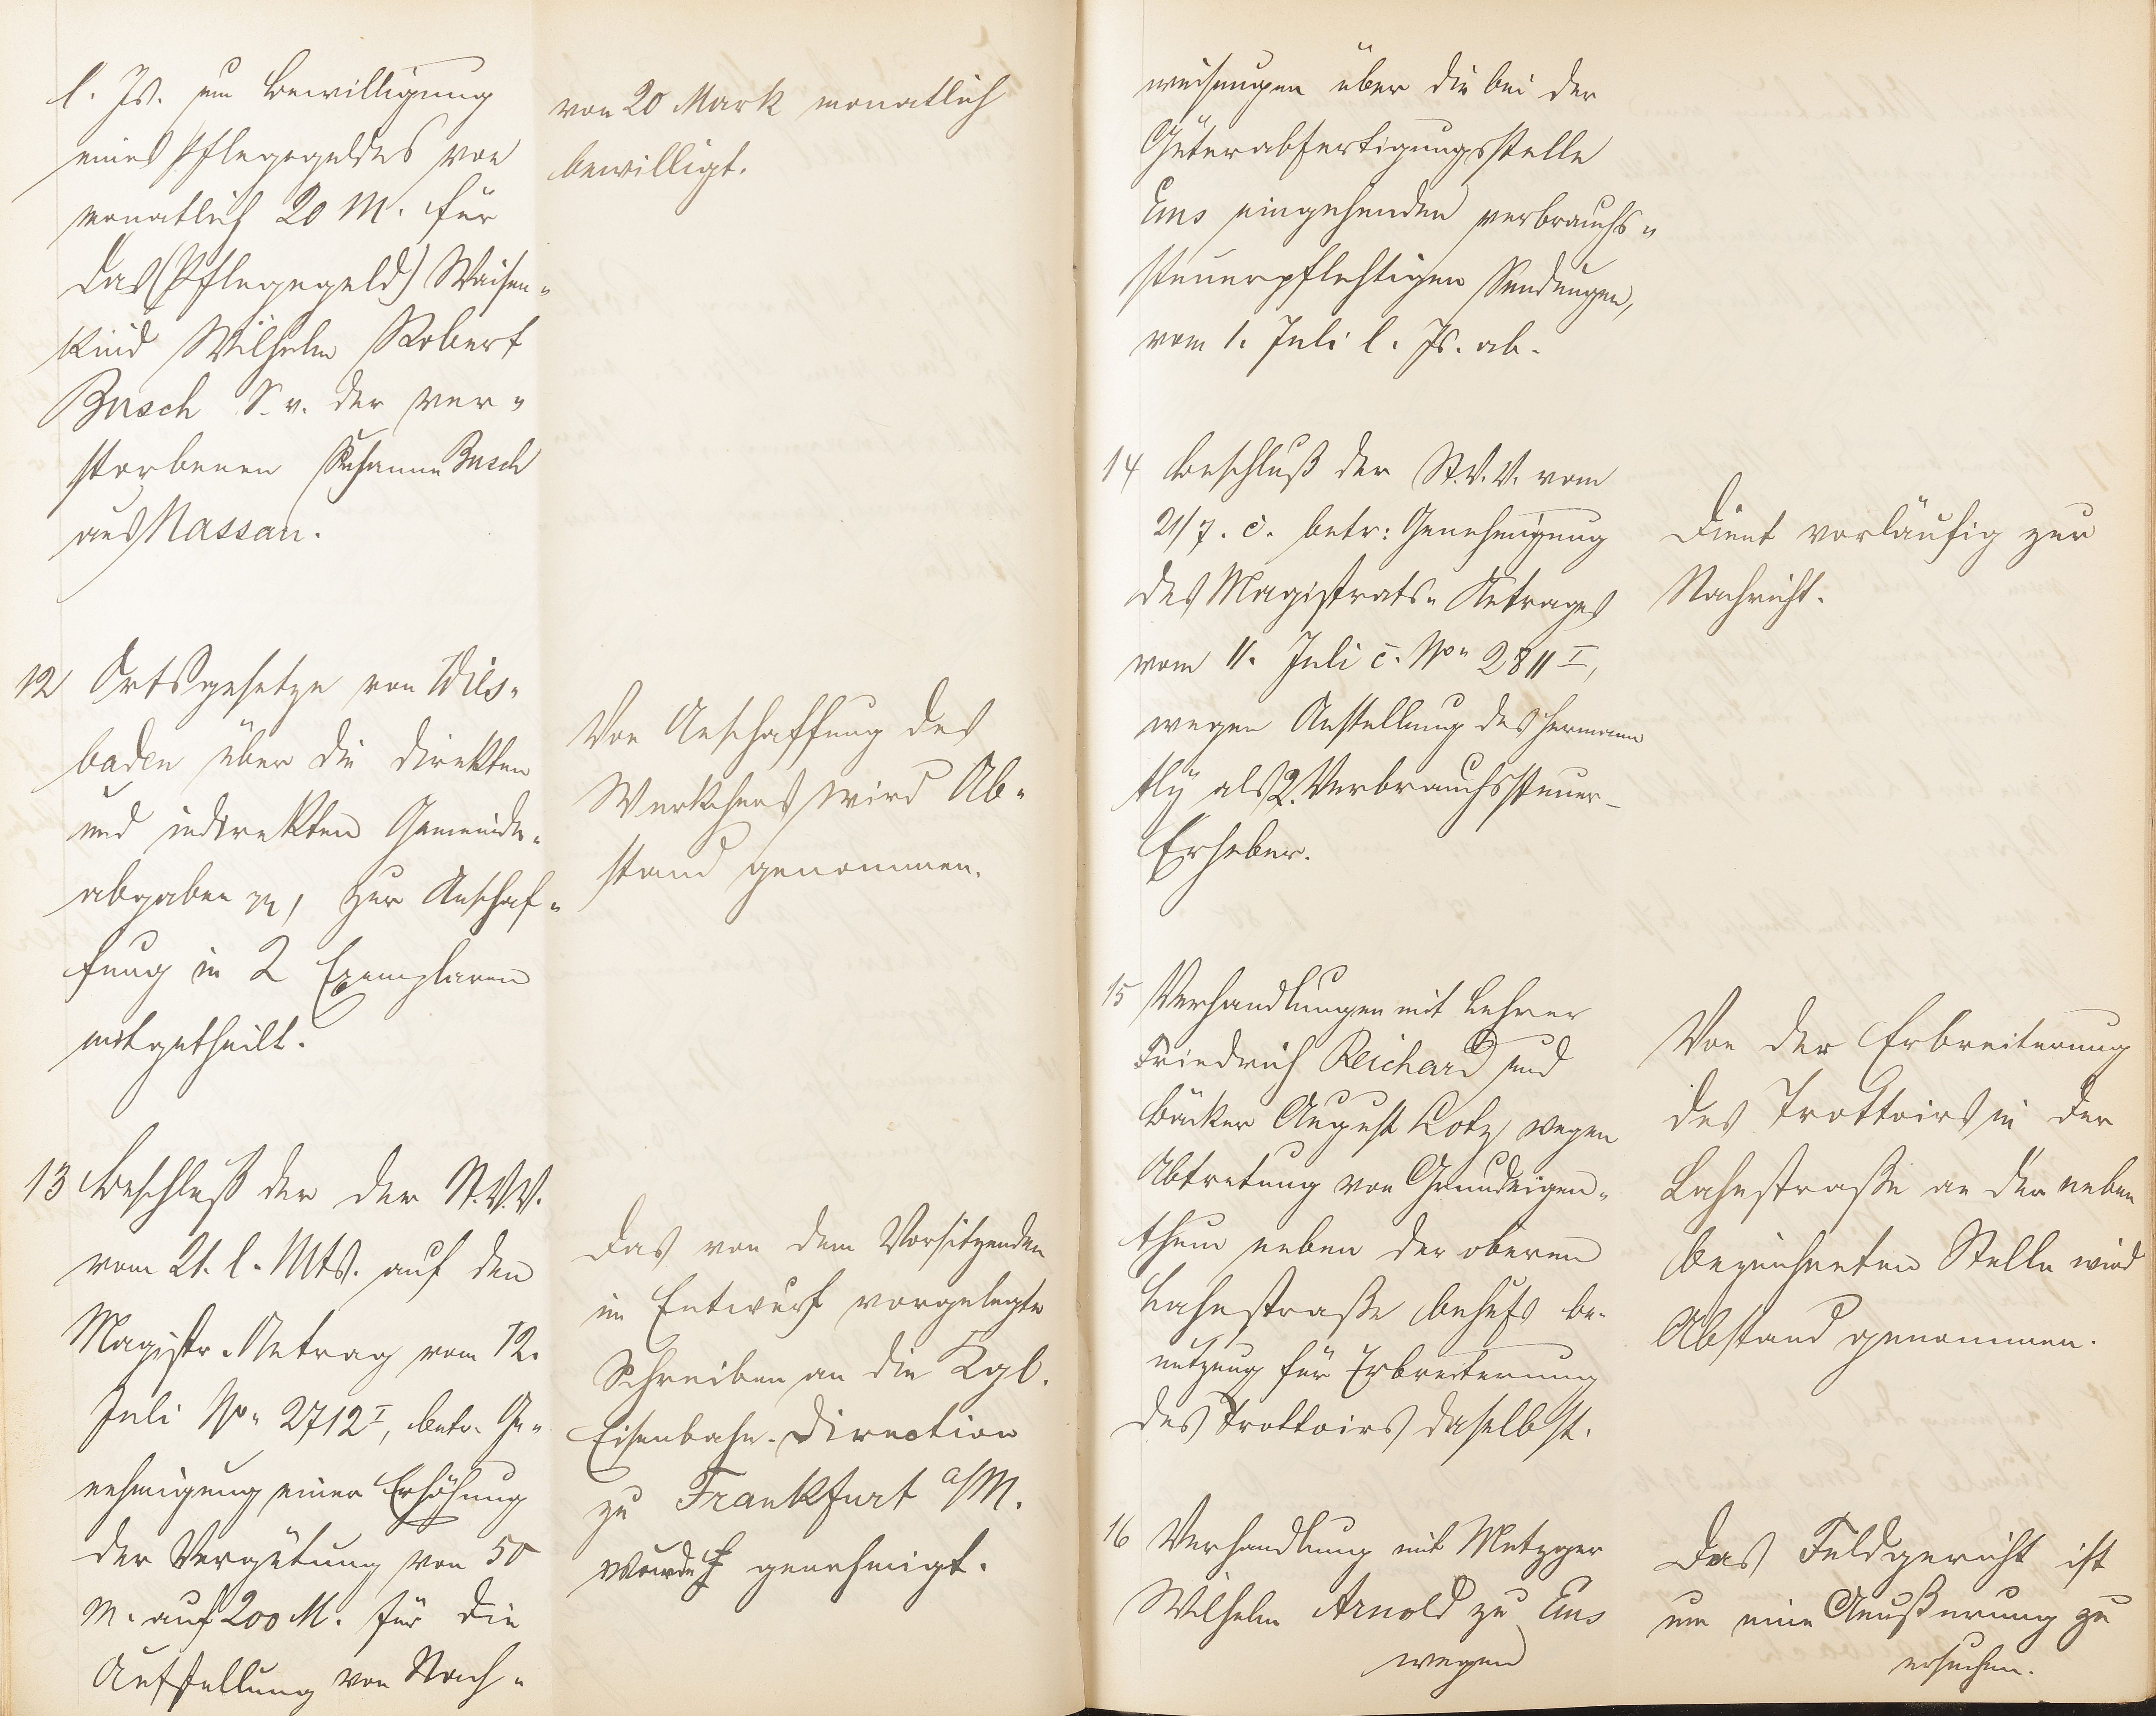 l. Js. um Bewilligung
eines Pflegegeldes von
monatlich 20 M. für
das (Pflegegeld) Waisen-
kind Wilhelm Robert
Busch S. v. der ver-
storbenen Susanna Busch
aus Nassau.
von 20 Mark monatlich
bewilligt.
12 Ortsgesetze von Wies-
baden über die direkten
und indirekten Gemeinde-
abgaben pp, zur Anschaf-
fung in 2 Exemplaren
mitgetheilt.
Von Anschaffung des
Werkchens wird Ab-
stand genommen.
13 Beschluß der der St.V.V.
vom 21. l. Mts. auf den
Magistr. Antrag vom 12.
Juli No. 2712 I, betr. Ge-
nehmigung einer Erhöhung
der Vergütung von 50
M. auf 200 M. für die
Aufstellung von Nach-
Das von dem Vorsitzenden
im Entwurf vorgelegte
Schreiben an die Kgl.
Eisenbahn-Direction
zu Frankfurt a/M.
wurde genehmigt.
weisungen über die bei der
Güterabfertigungsstelle
Ems eingehenden verbrauchs-
steuerpflichtigen Sendungen,
vom 1. Juli l. Js. ab.
14 Beschluß der St.V.V. vom
21/7. c. betr: Genehmigung
des Magistrats-Antrages
vom 11. Juli c. No. 2811 I,
wegen Anstellung des Hermann
als 2. Verbrauchssteuer-
Erheber.
Dient vorläufig zur
Nachricht.
15 Verhandlungen mit Lehrer
Friedrich Reichard und
Bäcker August Lotz wegen
Abtretung von Grundeigen-
thum neben der oberen
Lahnstraße behufs Be-
nutzung für Erbreiterung
des Trottoirs daselbst.
Von der Erbreiterung
des Trottoirs in der
Lahnstraße an der neben
bezeichneten Stelle wird
Abstand genommen.
16 Verhandlung mit Metzger
Wilhelm Arnold zu Ems
wegen
Das Feldgericht ist
um eine Aeußerung zu
ersuchen.